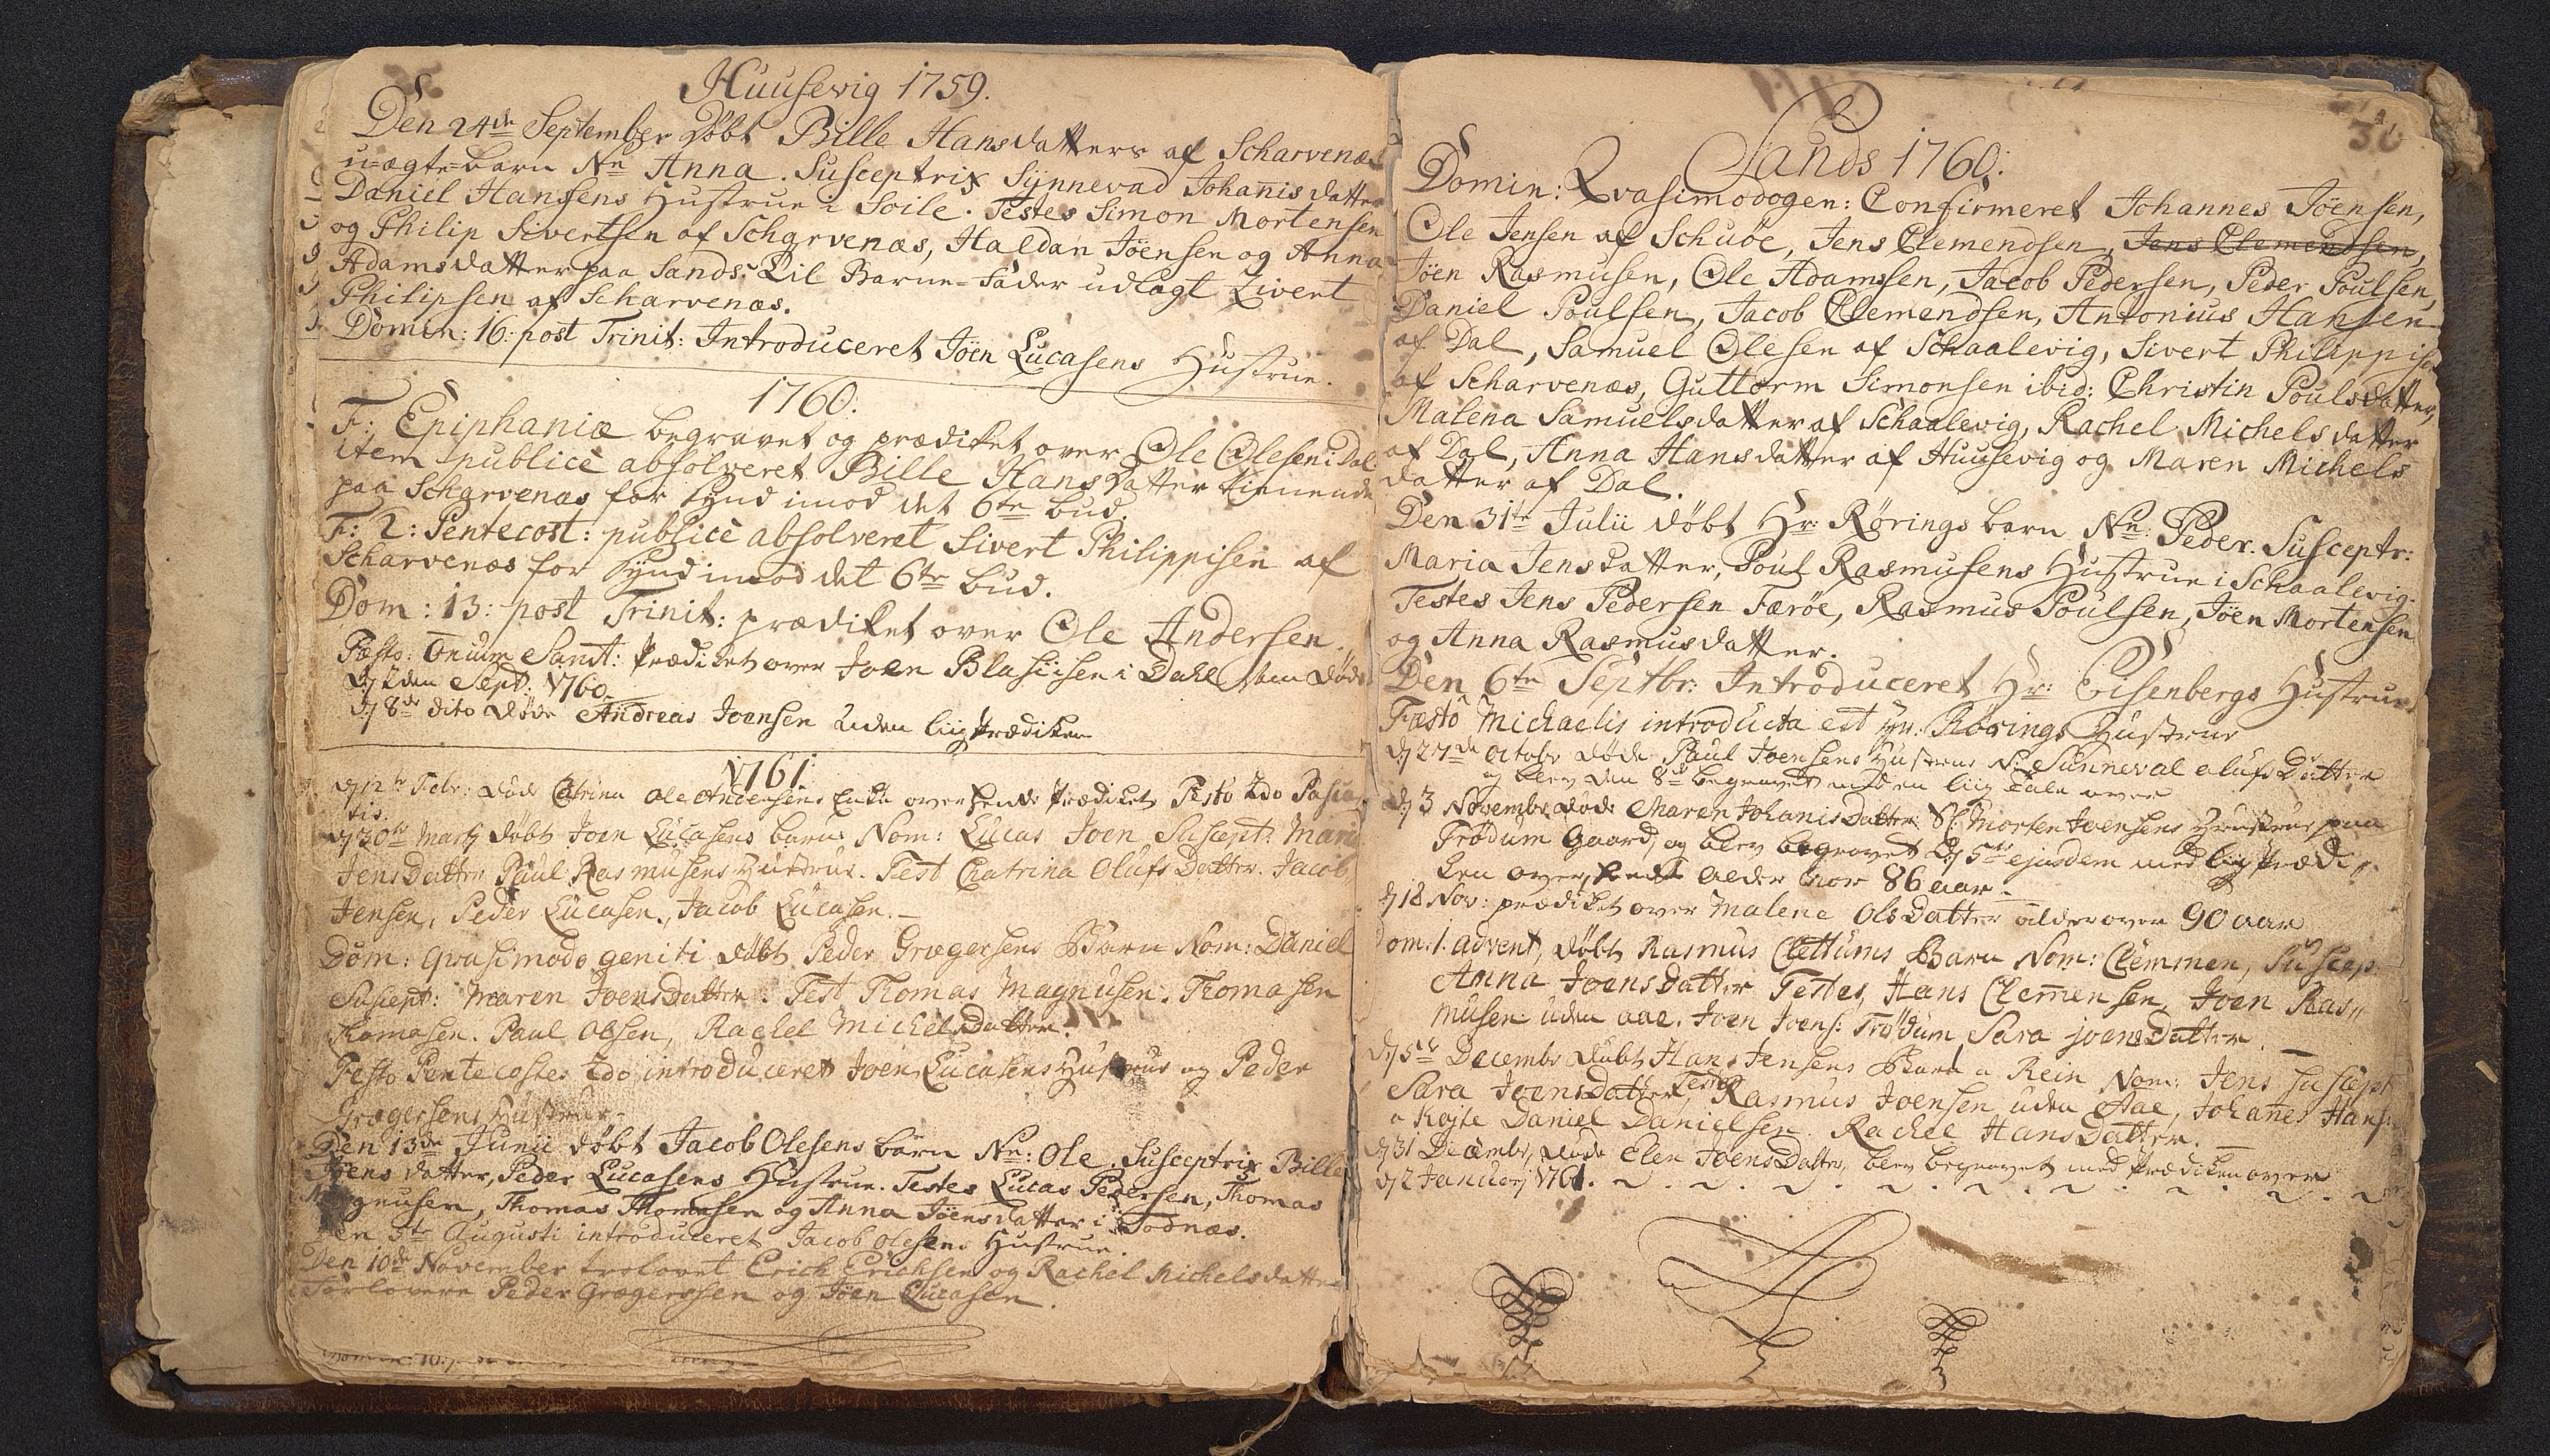 Huusevig 1759.
Den 24de September døbt Bille Hansdatters af Scharvenæs
u-ægte-barn Nn Anna. Susceptrix Synnevad Johannisdatter
Daniel Hansens Hustrue i Soile. Testes Simon Mortensen
og Philip Sivertsen af Scharvenæs, Haldan Jöensen og Anna
Adamsdatter paa Sands. Til Barne-Fader udlagt Sivert
Philipsen af Scharvenæs.
Domin: 16: post Trinit: Introduceret Jöen Lucasens Hustrue.
1760:
F: Epiphaniæ begravet og prædiket over Ole Olesen i Dal
item publicè absolveret Bille Hansdatter tienende
paa Scharvenæs for Synd imod det 6te bud.
F: 2: Pentecost: publicè absolveret Sivert Philippisen af
Scharvenæs for Synd imod det 6te bud.
Dom: 13: post Trinit: prædiket over Ole Andersen.
Fæsto: Omium Sanct: Prædiket over Joen Blasiisen i Dahl som døde
dj 2den Sept: 1760.
dj 8de dito døde Andreas Joensen uden liigprædiken
1761.
dj 12te Febr: døde Catrina Ole Andersens Enke over hende Prædiket Festo 2do Pascha
tis.
dj 30te Martj døbt Joen Lucasens barn Nom: Lucas Joen Suscept: Maria
Jensdatter Paul Rasmusens Hustrue. Test Chatrina Olufs Datter. Jacob
Jensen, Peder Lucasen, Jacob Lucasen.
Dom: Qvasimodo geniti døbt Peder Grægersens Barn Nom: Daniel
Suscept: Maren Joensdatter. Test Thomas Magnusen. Thomasen
Thomasen. Paul Olsen, Rachel Michelsdatter.
Festo Pentecostes 2do introduceret Joen Lucasens Hustrue og Peder
Grægersens Hustrue.
Den 13de Junii døbt Jacob Olesens barn Nn: Ole. Susceptrix Bille
Jöens datter, Peder Lucasens Hustrue. Testes Lucas Pedersen, Thomas
Magnusen, Thomas Thomasen og Anna Jöensdatter i Todnæs.
Den 5te Augusti introduceret Jacob Olesens Hustrue.
Den 10de November trolovet Erich Erichsen og Rachel Michelsdatter
Forlovere Peder Grægerssen og Jöen Lucasen.
30
Sands 1760:
Domin: Qvasimodogen: Confirmeret Johannes Jöensen,
Ole Jensen af Schuöe, Jens Clemendsen, Jens Clemendsen,
Jöen Rasmusen, Ole Adamsen, Jacob Pedersen, Peder Poulsen,
Daniel Poulsen, Jacob Clemendsen, Antonius Hansen
af Dal, Samuel Olesen af Schaalevig, Sivert Philippisen
af Scharvenæs, Guttorm Simonsen ibid: Christin Poulsdatter,
Malena Samuelsdatter af Schaalevig, Rachel Michelsdatter
af Dal, Anna Hansdatter af Huusevig og Maren Michels
datter af Dal.
Den 31te Julii døbt Hr: Rörings barn Nn: Peder. Susceptr:
Maria Jensdatter, Poul Rasmusens Hustrue i Schaalevig.
Testes Jens Pedersen Færöe, Rasmus Poulsen, Jöen Mortensen
og Anna Rasmusdatter.
Den 6te Septbr: Introduceret Hr: Eisenbergs Hustrue
Fæsto Michaelis introducta est Hr: Rörings Hustrue
dj 27de Octobr døde Paul Joensens Hustrue N: Sunneval Olufs Datter
og blev den 8de begravet med en liig tale over
dj 3 Novembr døde Maren Johanis Datter Sl: Morten Joensens Hustrue paa
Trödum Gaard, og blev begravet dj 5te ejusdem med liig Prædi
ken over, hendes Alder vor 86 aar.
dj 18 Nov: prædiket over Malene Ols Datter alder over 90 aar
Dom: 1. advent, døbt Rasmus Clettums Barn Nom: Clemmen, Suscep:
Anna Joensdatter Testes, Hans Clemensen, Joen Ras
musen uden aae. Joen Joens: Trödum, Sara joensDatter.
dj 5te Decembr døbt Hans Jensens Barn a Rein Nom: Jens Suscept
Sara Joensdatter, Testes Rasmus Joensen uden Aae, Johanes Hans:
a Kojte Daniel Danielsen. Rachel Hansdatter.
dj 31 Decembr, døde Elen Joens Datter, blev begravet med Prædiken over
dj 2 Januarj 1761.